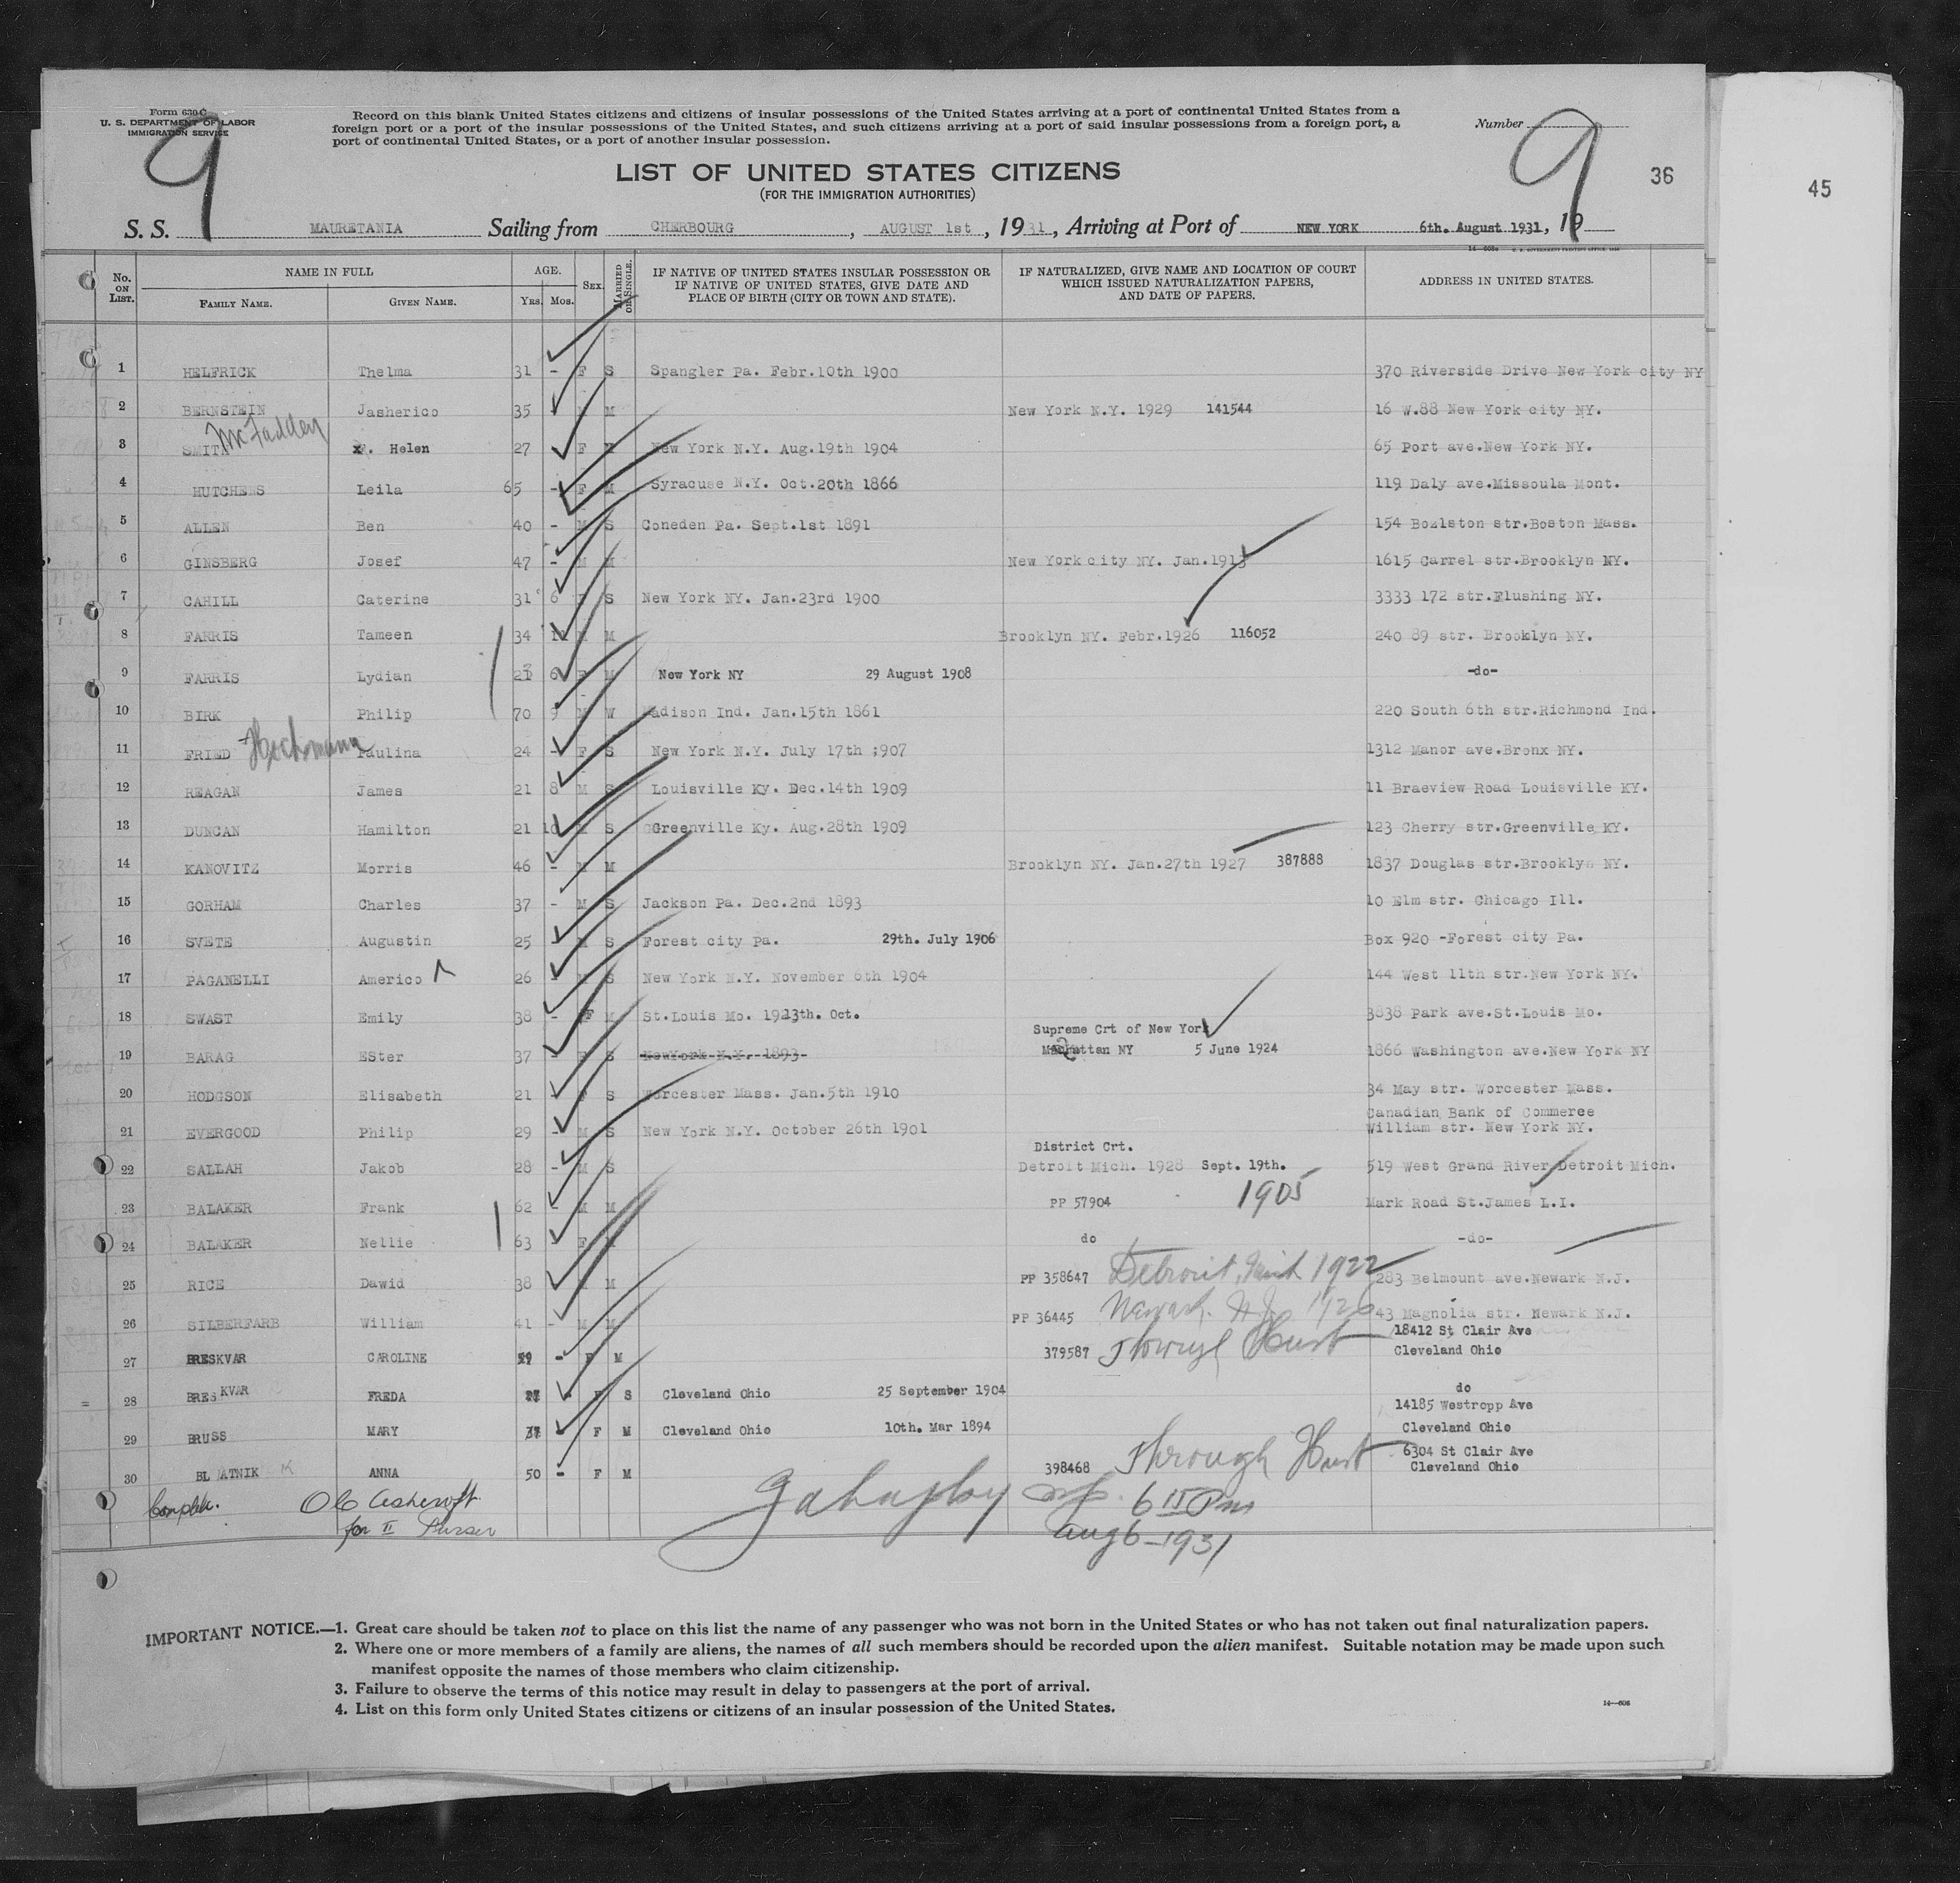 Form 630 C
U. S. DEPARTMENT OF LABOR
IMMIGRATION SERVICE
9
Record on this blank United States citizens and citizens of insular possessions of the United States arriving at a port of continental United States from a
foreign port or a port of the insular possessions of the United States, and such citizens arriving at a port of said insular possessions from a foreign port, a
port of continental United States, or a port of another insular possession.
Number
9
36
45
LIST OF UNITED STATES CITIZENS
(FOR THE IMMIGRATION AUTHORITIES)
S. S. MAURETANIA Sailing from CHERBOURG, AUGUST 1st, 1931, Arriving at Port of NEW YORK 6th. August 1931, 19
No. ON LIST. NAME IN FULL AGE. SEX. MARRIED OR SINGLE. IF NATIVE OF UNITED STATES INSULAR POSSESSION OR IF NATIVE OF UNITED STATES, GIVE DATE AND PLACE OF BIRTH (CITY OR TOWN AND STATE). IF NATURALIZED, GIVE NAME AND LOCATION OF COURT WHICH ISSUED NATURALIZATION PAPERS, AND DATE OF PAPERS. ADDRESS IN UNITED STATES.
FAMILY NAME. GIVEN NAME. YRS. MOS.
1 HELFRICK Thelma 31 - F S Spangler Pa. Febr.10th 1900 370 Riverside Drive New York city NY
2 BERNSTEIN Jasherico 35 M New York N.Y. 1929 141544 16 W.88 New York city NY.
McFadden
3 SMITH Helen 27 F New York N.Y. Aug.19th 1904 65 Port ave.New York NY.
4 HUTCHENS Leila 65 - F M Syracuse N.Y. Oct.20th 1866 119 Daly ave.Missoula Mont.
5 ALLEN Ben 40 - M S Coneden Pa. Sept.1st 1891 154 Bozlston str.Boston Mass.
6 GINSBERG Josef 47 - M M New York city NY. Jan.1913 1615 Carrel str.Brooklyn NY.
7 CAHILL Caterine 31 6 F S New York NY. Jan.23rd 1900 3333 172 str.Flushing NY.
8 FARRIS Tameen 34 M Brooklyn NY. Febr.1926 116052 240 89 str. Brooklyn NY.
9 FARRIS Lydian 6 F M New York NY 29 August 1908 -do-
10 BIRK Philip 70 9 M W Madison Ind. Jan.15th 1861 220 South 6th str.Richmond Ind.
11 FRIED Hochmann Paulina 24 - F S New York N.Y. July 17th ;907 1312 Manor ave.Bronx NY.
12 REAGAN James 21 8 M S Louisville Ky. Dec.14th 1909 11 Braeview Road Louisville KY.
13 DUNCAN Hamilton 21 10 M S Greenville Ky. Aug.28th 1909 123 Cherry str.Greenville KY.
14 KANOVITZ Morris 46 - M M Brooklyn NY. Jan.27th 1927 387888 1837 Douglas str.Brooklyn NY.
15 GORHAM Charles 37 - M S Jackson Pa. Dec.2nd 1893 10 Elm str. Chicago Ill.
16 SVETE Augustin 25 - M S Forest city Pa. 29th. July 1906 Box 920 -Forest city Pa.
17 PAGANELLI Americo 26 - M S New York N.Y. November 6th 1904 144 West 11th str.New York NY.
18 SWAST Emily 38 - F M St.Louis Mo. 13th. Oct. 3838 Park ave.St.Louis Mo.
Supreme Crt of New York
19 BARAG ESter 37 - F S NewYork N.Y. 1893 Manhattan NY 5 June 1924 1866 Washington ave.New York NY
20 HODGSON Elisabeth 21 F S Worcester Mass. Jan.5th 1910 34 May str. Worcester Mass.
Canadian Bank of Commerce
21 EVERGOOD Philip 29 - M S New York N.Y. October 26th 1901 William str. New York NY.
District Crt.
22 SALLAH Jakob 28 - M S Detroit Mich. 1928 Sept. 19th. 519 West Grand River Detroit Mich.
23 BALAKER Frank 62 - M M PP 57904 1905 Mark Road St.James L.I.
24 BALAKER Nellie 63 F M do -do-
25 RICE Dawid 38 M PP 358647 Detroit, Mich 1922 283 Belmount ave.Newark N.J.
26 SILBERFARB William 41 - M M PP 36445 Newark. N.J. 1926 43 Magnolia str. Newark N.J.
18412 St Clair Ave
27 BRESKVAR CAROLINE - F M 379587 Through Husb Cleveland Ohio
28 BRESKVAR FREDA - F S Cleveland Ohio 25 September 1904 do
14185 Westropp Ave
29 BRUSS MARY 37 - F M Cleveland Ohio 10th. Mar 1894 Cleveland Ohio
6304 St Clair Ave
30 BLATNIK ANNA 50 - F M 398468 Through Husb Cleveland Ohio
Complete. Ashcroft
for II Purser
6 15 Pm
Aug 6-1931
IMPORTANT NOTICE.—1. Great care should be taken not to place on this list the name of any passenger who was not born in the United States or who has not taken out final naturalization papers.
2. Where one or more members of a family are aliens, the names of all such members should be recorded upon the alien manifest. Suitable notation may be made upon such
manifest opposite the names of those members who claim citizenship.
3. Failure to observe the terms of this notice may result in delay to passengers at the port of arrival.
4. List on this form only United States citizens or citizens of an insular possession of the United States.
14—606